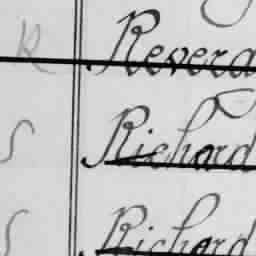 R Revera
S Richard
S Richard